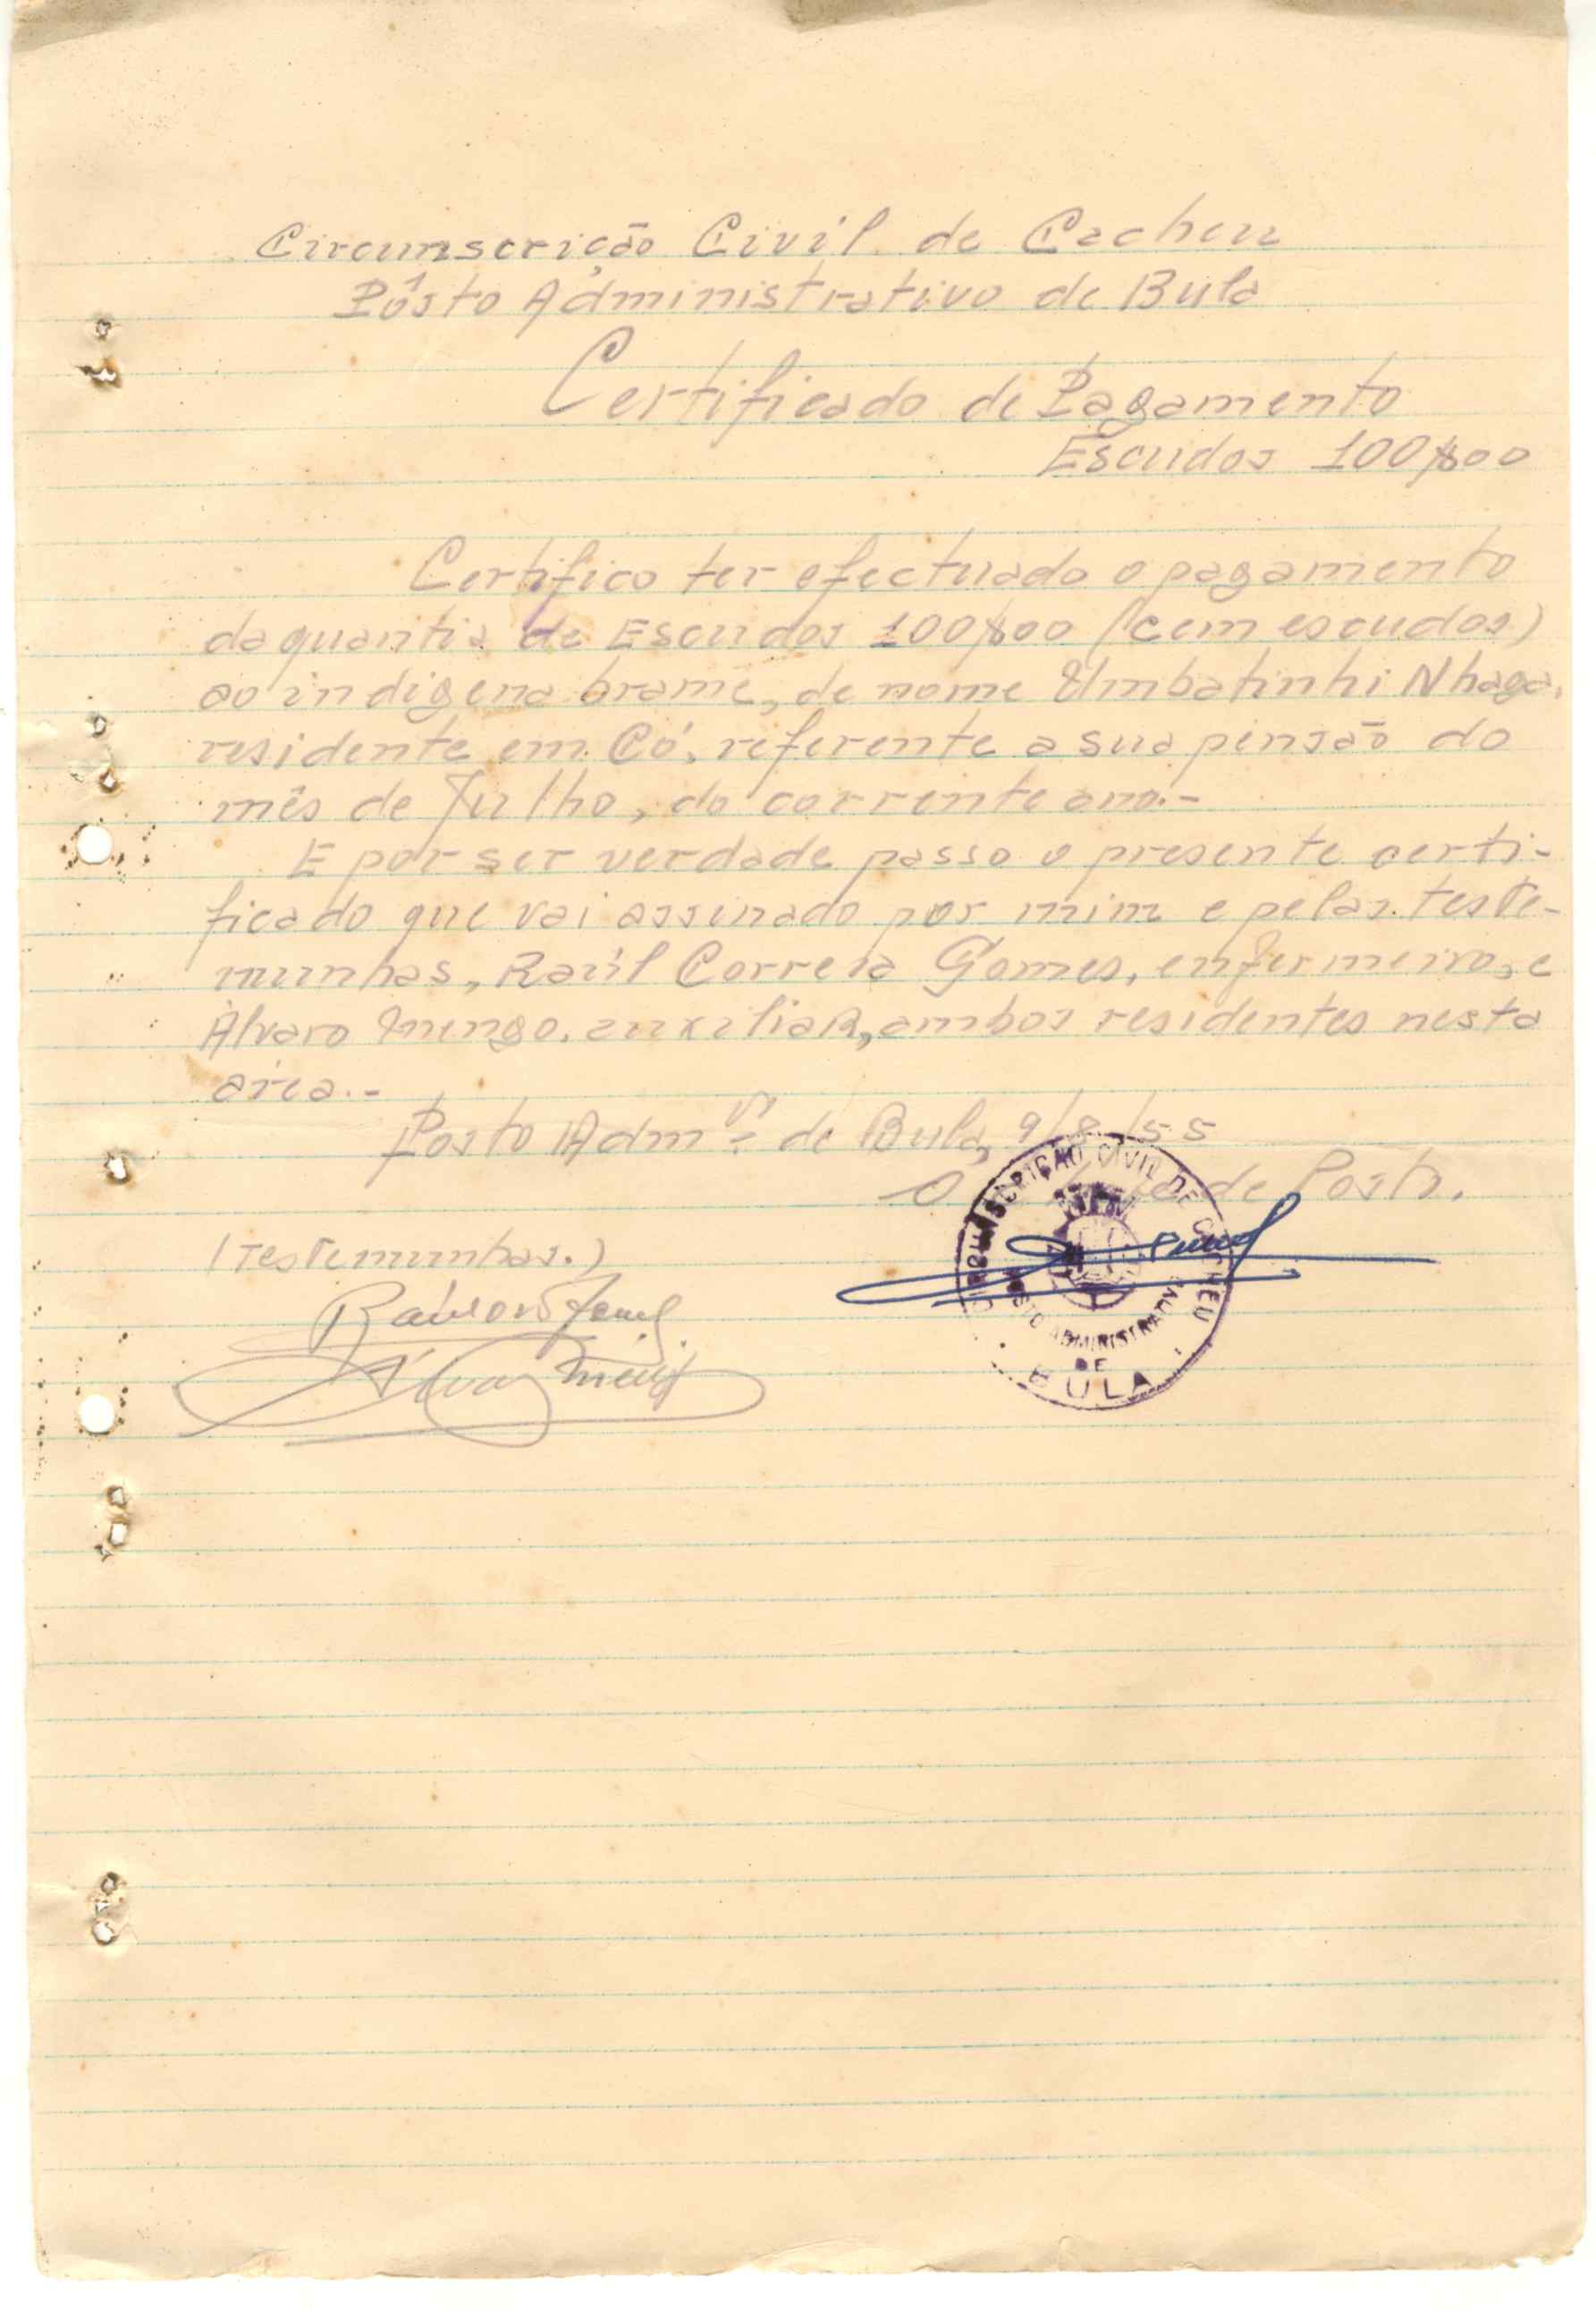 Circunscrição Civil de Cacheu
Pôsto Administrativo de Bula
Certificado de Pagamento
Escudos 100$00
Certifico ter efectuado o pagamento
da quantia de Escudos 100$00 (cem escudos)
ao indigena brame, de nome Umbatinhi Nhaga,
residente em Có, referente a sua pensão do
mês de Julho, do corrente ano.-
E por ser verdade passo o presente certi-
ficado que vai assinado por mim e pelas teste-
munhas, Raúl Correia Gomes, enfermeiro, e
Álvaro Inengo, auxiliar, ambos residentes nesta
área.-
Posto Admvº de Bula, 9/8/55
O de Posto.
CIRCUNSCRIÇÃO CIVIL DE CACHEU
POSTO ADMINISTRATIVO
DE
BULA
(Testemunhas.)